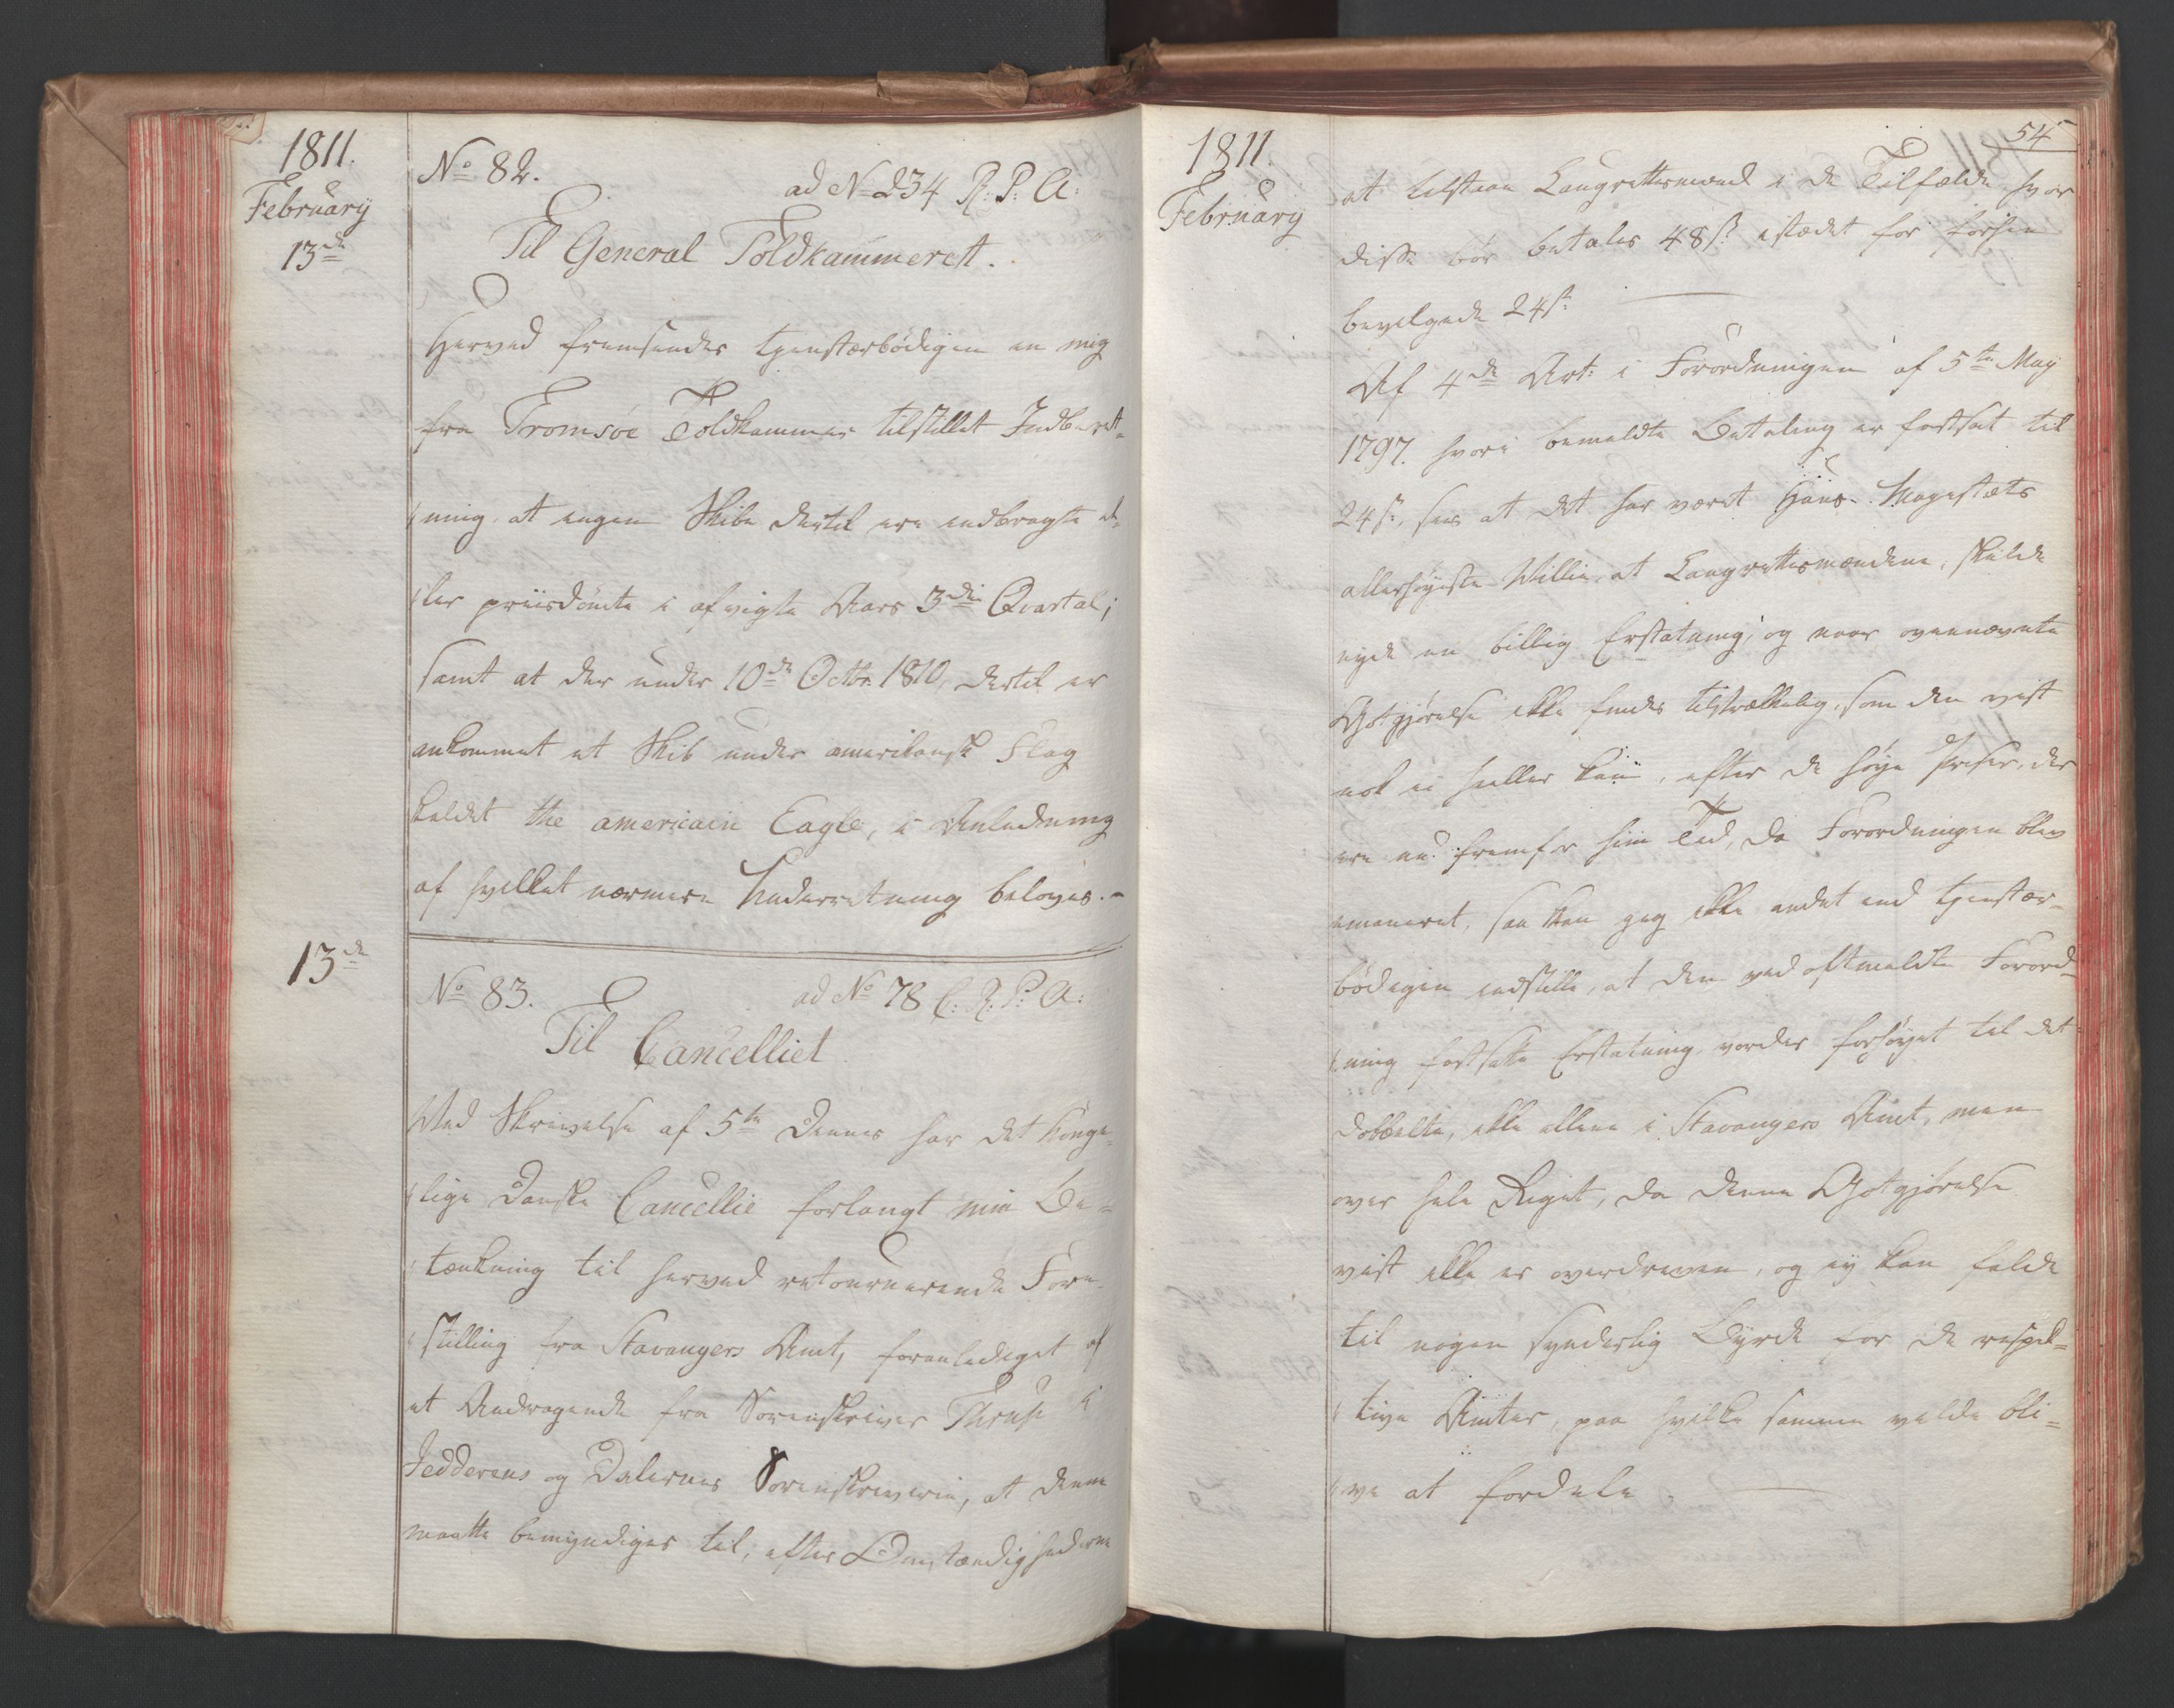 1811.
February
13de
No 82.
ad No 234 R: P: A:
Til General Toldkammeret.
Herved fremsendes tienstærbödigen en mig
fra Tromsöe Toldkammer tilstillet Indberet-
ning, at ingen Skibe dertil ere indbragte el-
ler priisdömte i afvigte Aars 3die Qvartal;
samt at der under 10de Octbr 1810, dertil er
ankommet et Skib under amerikansk Flag
kaldet the americain Eagle, i Anledning
af hvilket nærmere Underretning beloves.-
13de
No 83.
ad No 78 C: R: P: A:
Til Cancelliet
Ved Skrivelse af 5te Dennes har det Konge-
lige Danske Cancellie forlangt min Be-
tænkning til herved retournerende Fore-
stilling fra Stavangers Amt, foranlediget af
et Andragende fra Sorenskriver i
Jedderens og Dalernes Sorenskriverie, at denne
maatte bemyndiges til, efter Omstændighederne
1811.
February
54
at tilstaae Laugrettesmænd i de Tilfælde hvor
disse bör betales 48 s. istædet for forhen
bevilgede 24 s.
Af 4de Art: i Forordningen af 5te May
1797. hvori bemeldte Betaling er fastsat til
24 s., sees at det har været Hans Magestæts
allerhöyeste Villie, at Laugrettesmændene, skulde
nyde en billig Erstatning; og naar ovennævnte
Godtgjörelse ikke findes tilstrækkelig, som den vist
nok ei heller kan, efter de höye Priser, der
ere nu fremfor hiin Tid, da Forordningen blev
emaneret, saa kan jeg ikke andet end tienstær-
bödigen indstille, at den ved oftmeldte Forord-
ning fastsatte Erstatning vorder forhöyet til det
dobbelte, ikke allene i Stavangers Amt, men
over hele Riget, da denne Godtgjörelse
vist ikke er overdreven, og ey kan falde
til nogen synderlig Byrde for de respek-
tive Amter, paa hvilke samme vilde bli-
ve at fordele